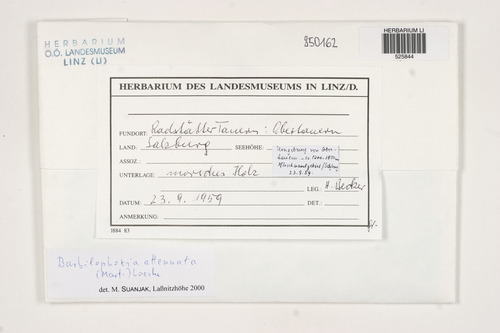 HERBARIUM
O.Ö. LANDESMUSEUM
LINZ (LI)
850162
HERBARIUM LI
525844
HERBARIUM DES LANDESMUSEUMS IN LINZ/D.
FUNDORT: Radstätter Tauern: Obertauern
LAND: Salzburg SEEHÖHE:
Umgebung von Ober-
tauern
23.9.59
ASSOZ.:
UNTERLAGE: morsches Holz
LEG.: H. Becker
DATUM: 23. 9. 1959 DET.:
ANMERKUNG:
1884 83
Barbilophozia attenuata
(Mart.) Loeske
det. M. SUANJAK, Laßnitzhöhe 2000